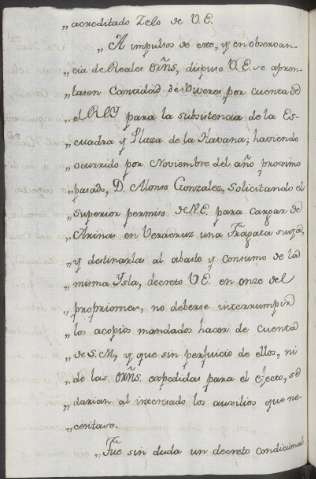 „acreditado Zelo de V.E.
„A impulsos de este, y en observan-
„cia de Reales Orñs, dispuso V.E. se apron-
„tasen Cantidad de Viveres por cuenta de
„el Rey para la subsistencia de la Es-
„cuadra y Plaza de la Havana; haviendo
„ocurrido por Noviembre del año proximo
„pasado, D. Alonso Gonzalez, Solicitando el
„superior permiso de V.E. para cargar de
„Arinas en Veracruz una Fragata suya,
„y destinarlas al abasto y consumo de la
„misma Isla, decretó V.E. en onze del
„proprio mes, no deberse interrumpir
„los acopios mandados hacer de cuenta
„de S.M, y que sin perjuicio de ellos, ni
„de las orñs. expedidas para el efecto, se
„darian al interesado los auxilios que ne-
„cesitase.
„Fue sin duda un decreto condicional